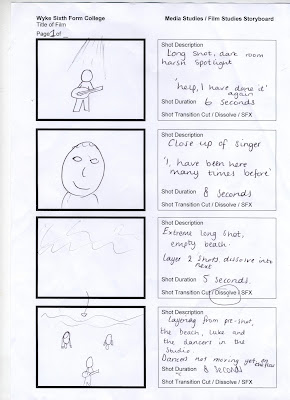 Wyke Sixth Form College
Media Studies / Film Studies Storyboard
Title of Film
Page 1 of
Shot Description
Long Shot, dark room
harsh spotlight
'help, I have done it
again
Shot Duration 6 seconds
Shot Transition Cut / Dissolve / SFX
Shot Description
Close up of singer
'I, have been here
many times before'
Shot Duration 8 seconds
Shot Transition Cut / Dissolve / SFX
Shot Description
Extreme long shot,
empty beach.
Layer 2 shots, dissolve into
next
Shot Duration 5 seconds.
Shot Transition Cut / Dissolve / SFX
Shot Description
Layering from pre-shot,
the beach, Luke and
the dancers in the
studio.
Dancers not moving yet, on the floor
Shot Duration 8 seconds
Shot Transition Cut / Dissolve / SFX